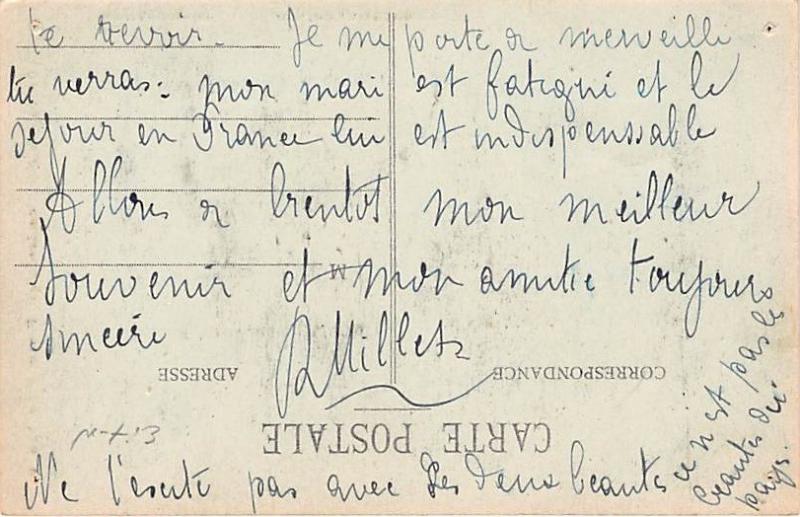 te revoir. Je me porte à merveille
tu verras: mon mari est fatigué et le
séjour en France lui est indispenssable
Allons à bientôt mon meilleur
souvenir et mon amitié toujours
sincère RMillet
M
CORRESPONDANCE
ADRESSE
CARTE POSTALE
Ne t'excite pas avec les deux beautés
ce n'est pas les
beautés du
pays.